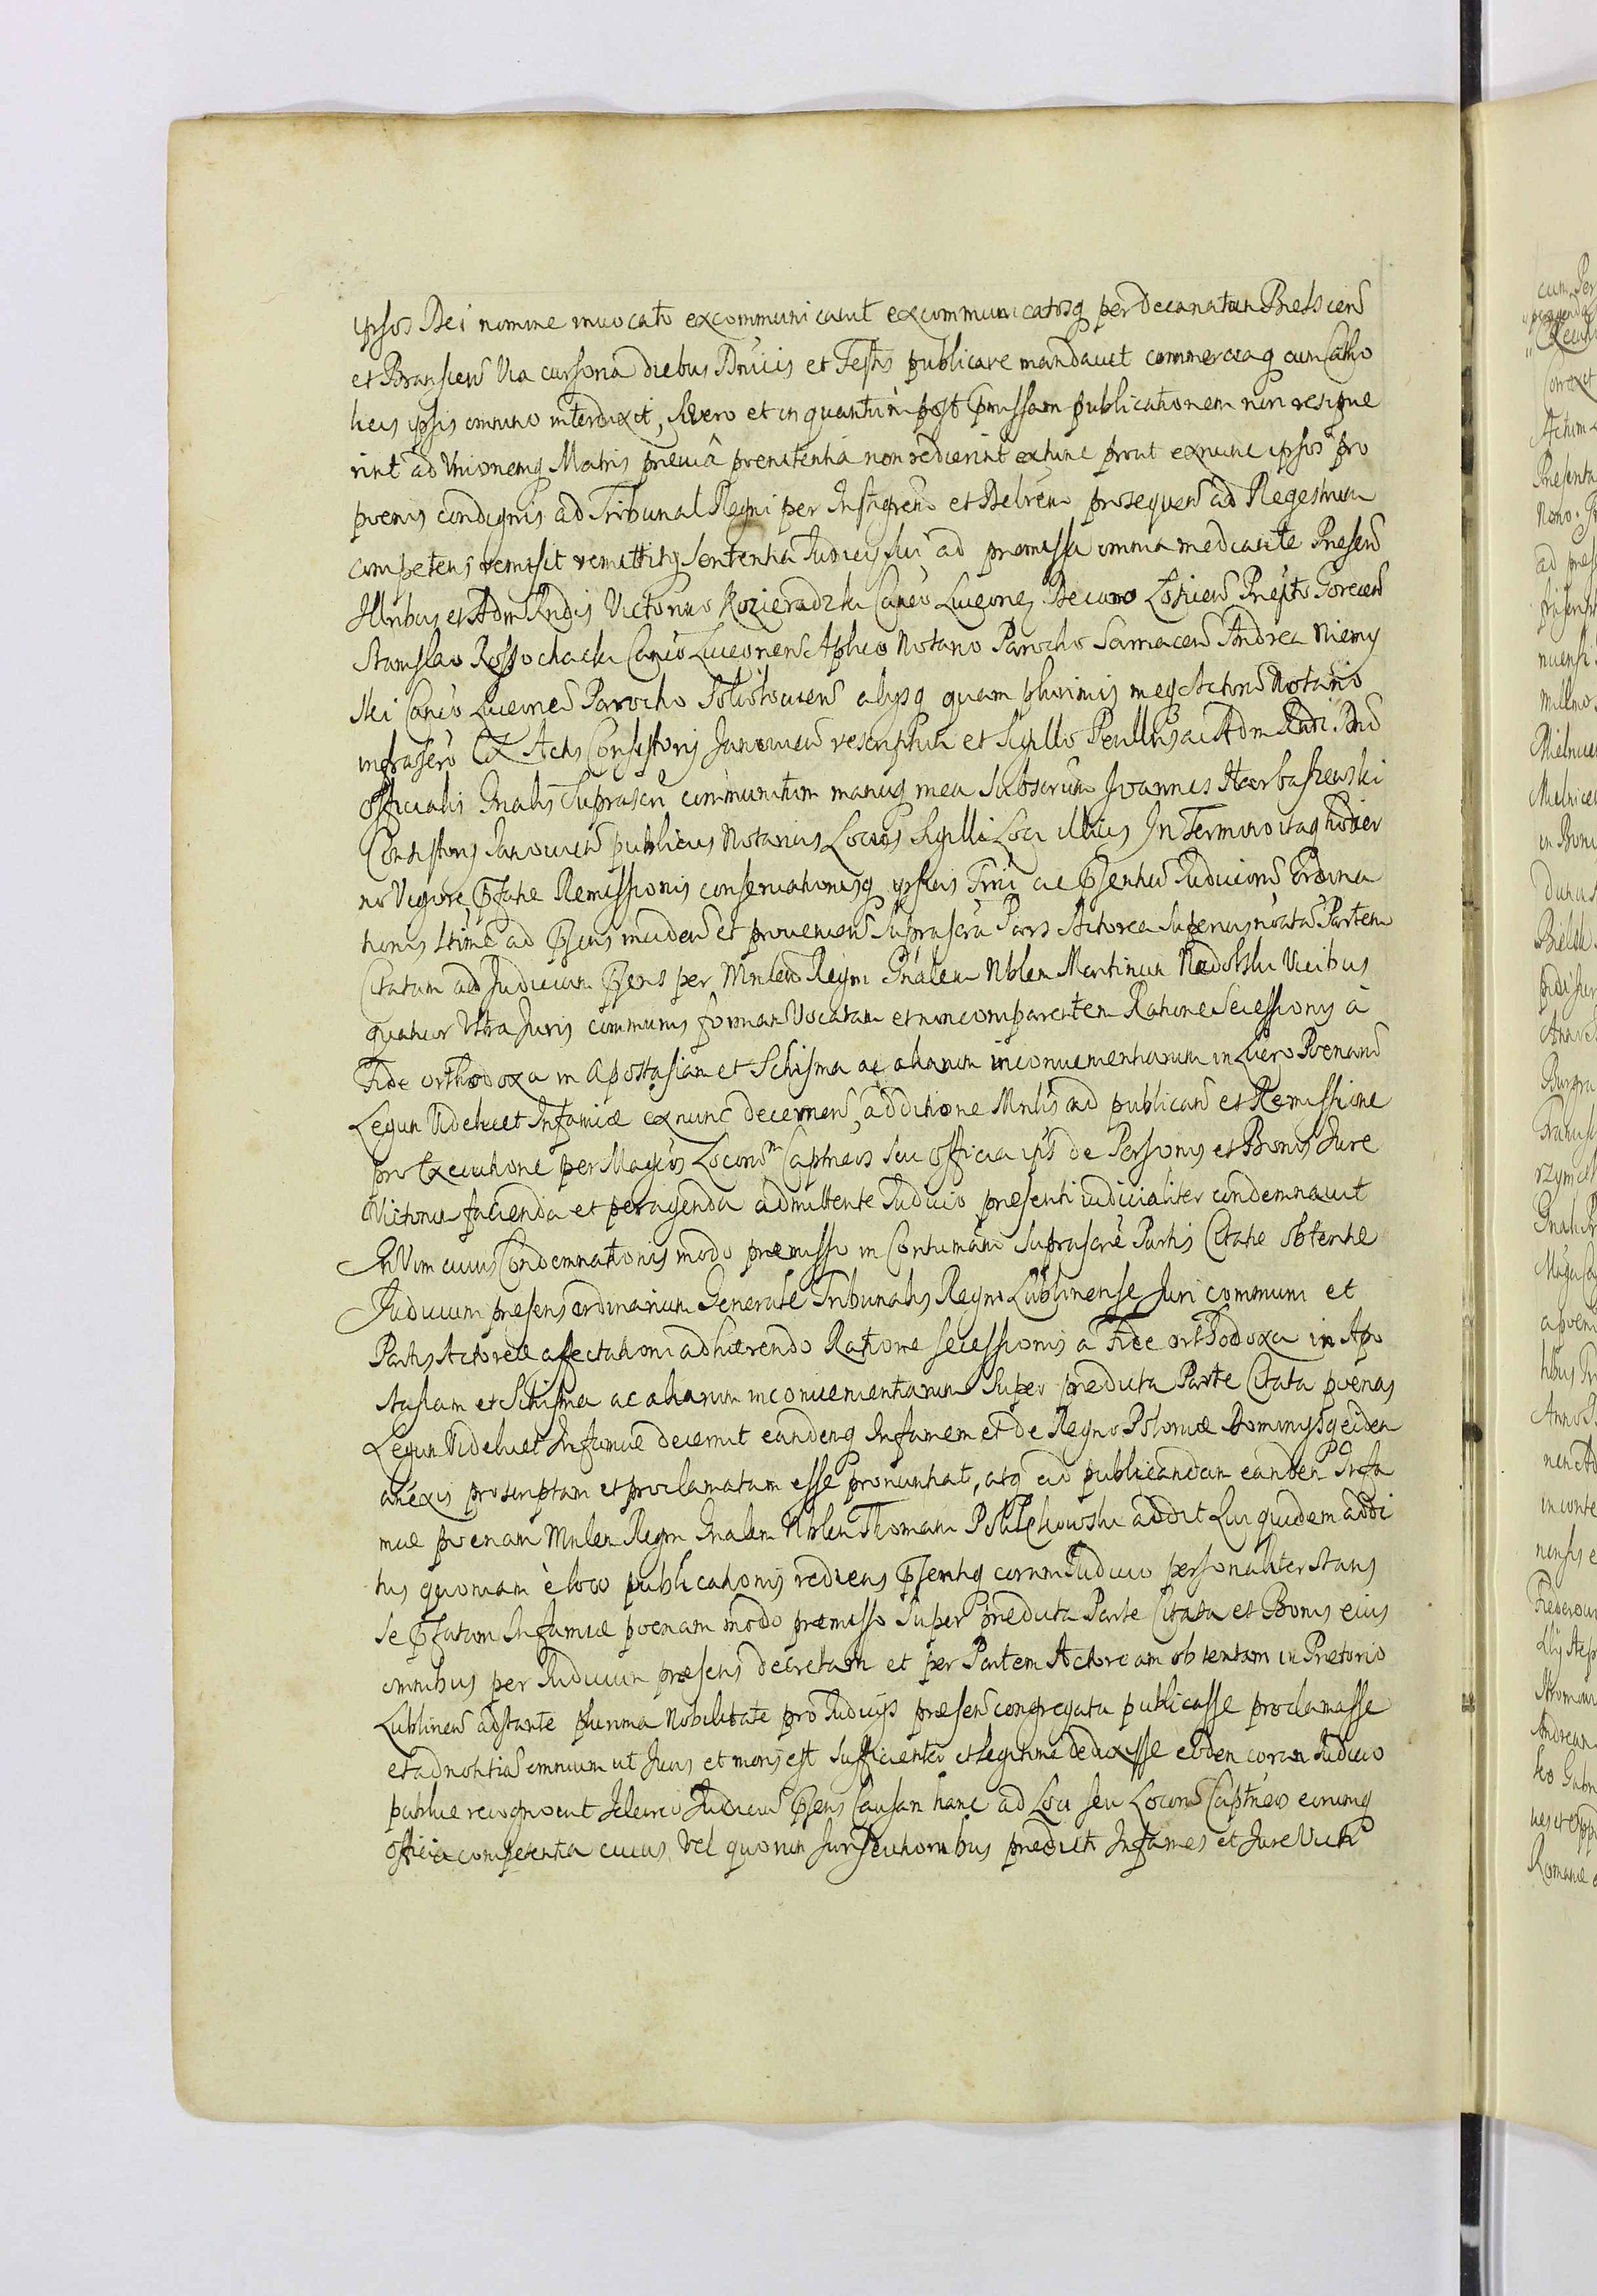 ipsos Dei nomine invocato excommunicavit excommunicatosq per decanatum Bielscen
et Branscen Via cursoria diebus Dnicis et Festis publicare mandavit commerciaq cum Catho
licis ipsis omnino interdixit, Si vero et in quantum post pmissam publicationem non resipue
rint ad Unionemq Matris previâ penitentia non redierint extunc prout exnunc ipsos pro
poenis condignis ad Tribunal Regni per Instigren et Delren prosequen ad Regestrum
competens remisit remittitq Sententia Judicij sui ad premissa omnia mediante Presen
Illribus et Adm Rndis Victorino Kozieradzki Canco Luceorien Decano Losicen Prepto Gorecen
Stanislao Rossochacki Canco Luceorien Aplico Notario Parocho Sarnacen Andrea Niemy
ski Canco Luceorien Parocho alysq quam plurimis meq Actorum Notario
infrascro Ex Actis Consistorij Janovien rescriptum et Sigillo Perillris ac Adm Rndi Dni
Officialis Gnalis Suprascri communitum manuq mea Subscrum Joannes Horbaszewski
Consistorij Janovien publicus Notarius Locus Sigilli Loci illius In Termino itaq hodier
no Vigore pfatae Remissionis conservationisq ipsius Trni ac psentium Judiciorum Ordina
tionis ad psens inciden et provenien Suprascra Pars Actorea Superius nrata Partem
Citatam ad Judicium psens per Mnlem Regni Gnalem Nblem Martinum Vicibus
quatuor Ultra Juris communis formam Vocatam et non comparentem Ratione Secessionis à
Fide orthodoxa in Apostasiam et Schisma ac aliarum inconvenientiarum in Lucro Poenarum
Legum Videlicet Infamiæ exnunc decernen, additione Mnlis ad publican et Remissione
pro Executione per Magcos Locorum Captneos seu Officia ipsor de Personis et Bonis Jure
Victorum facienda et peragenda admittente Judicio presenti iudicialiter condemnavit
In Vim cuius Condemnationis modo præmisso in Contumam Suprascræ Partis Citatæ Obtentæ
Judicium presens ordinarium Generale Tribunalis Regni Lublinense Juri communi et
Partis Actoreæ affectationi adhærendo Ratione secessionis a Fide orthodoxa in Apo
stasiam et Schisma ac aliarum inconvenientiarum Super predicta Parte Citata poenas
Legum Videlicet Infamiæ decernit eandemq Infamem et de Regno Poloniæ Dominijsq eidem
anexis proscriptam et proclamatam esse pronuntiat, atq ad publicandam eandem Infa
miæ poenam Mnlem Regni Gnalem Nblem Thomam addit Qui quidem addi
tus quoniam è loco publicationis rediens psentiq coram Judicio personaliter stans
Se pfatam Infamiæ poenam modo præmisso Super predicta Parte Citata et Bonis eius
omnibus per Judicium præsens decretam et per Partem Actoream obtentam in Pretorio
Lublinen adstante plurima Nobilitate pro Judicijs præsen congregata publicasse proclamasse
et ad notitiam omnium ut Juris et moris est Sufficienter et legitime deduxisse eodem coram Judicio
publice recognovit Idcirco Judicium psens Causam hanc ad Loci seu Locorum Captneos eorumq
Officia competentia cuius vel quorum Jurisdictionibus predicti Infames et Jure Victi